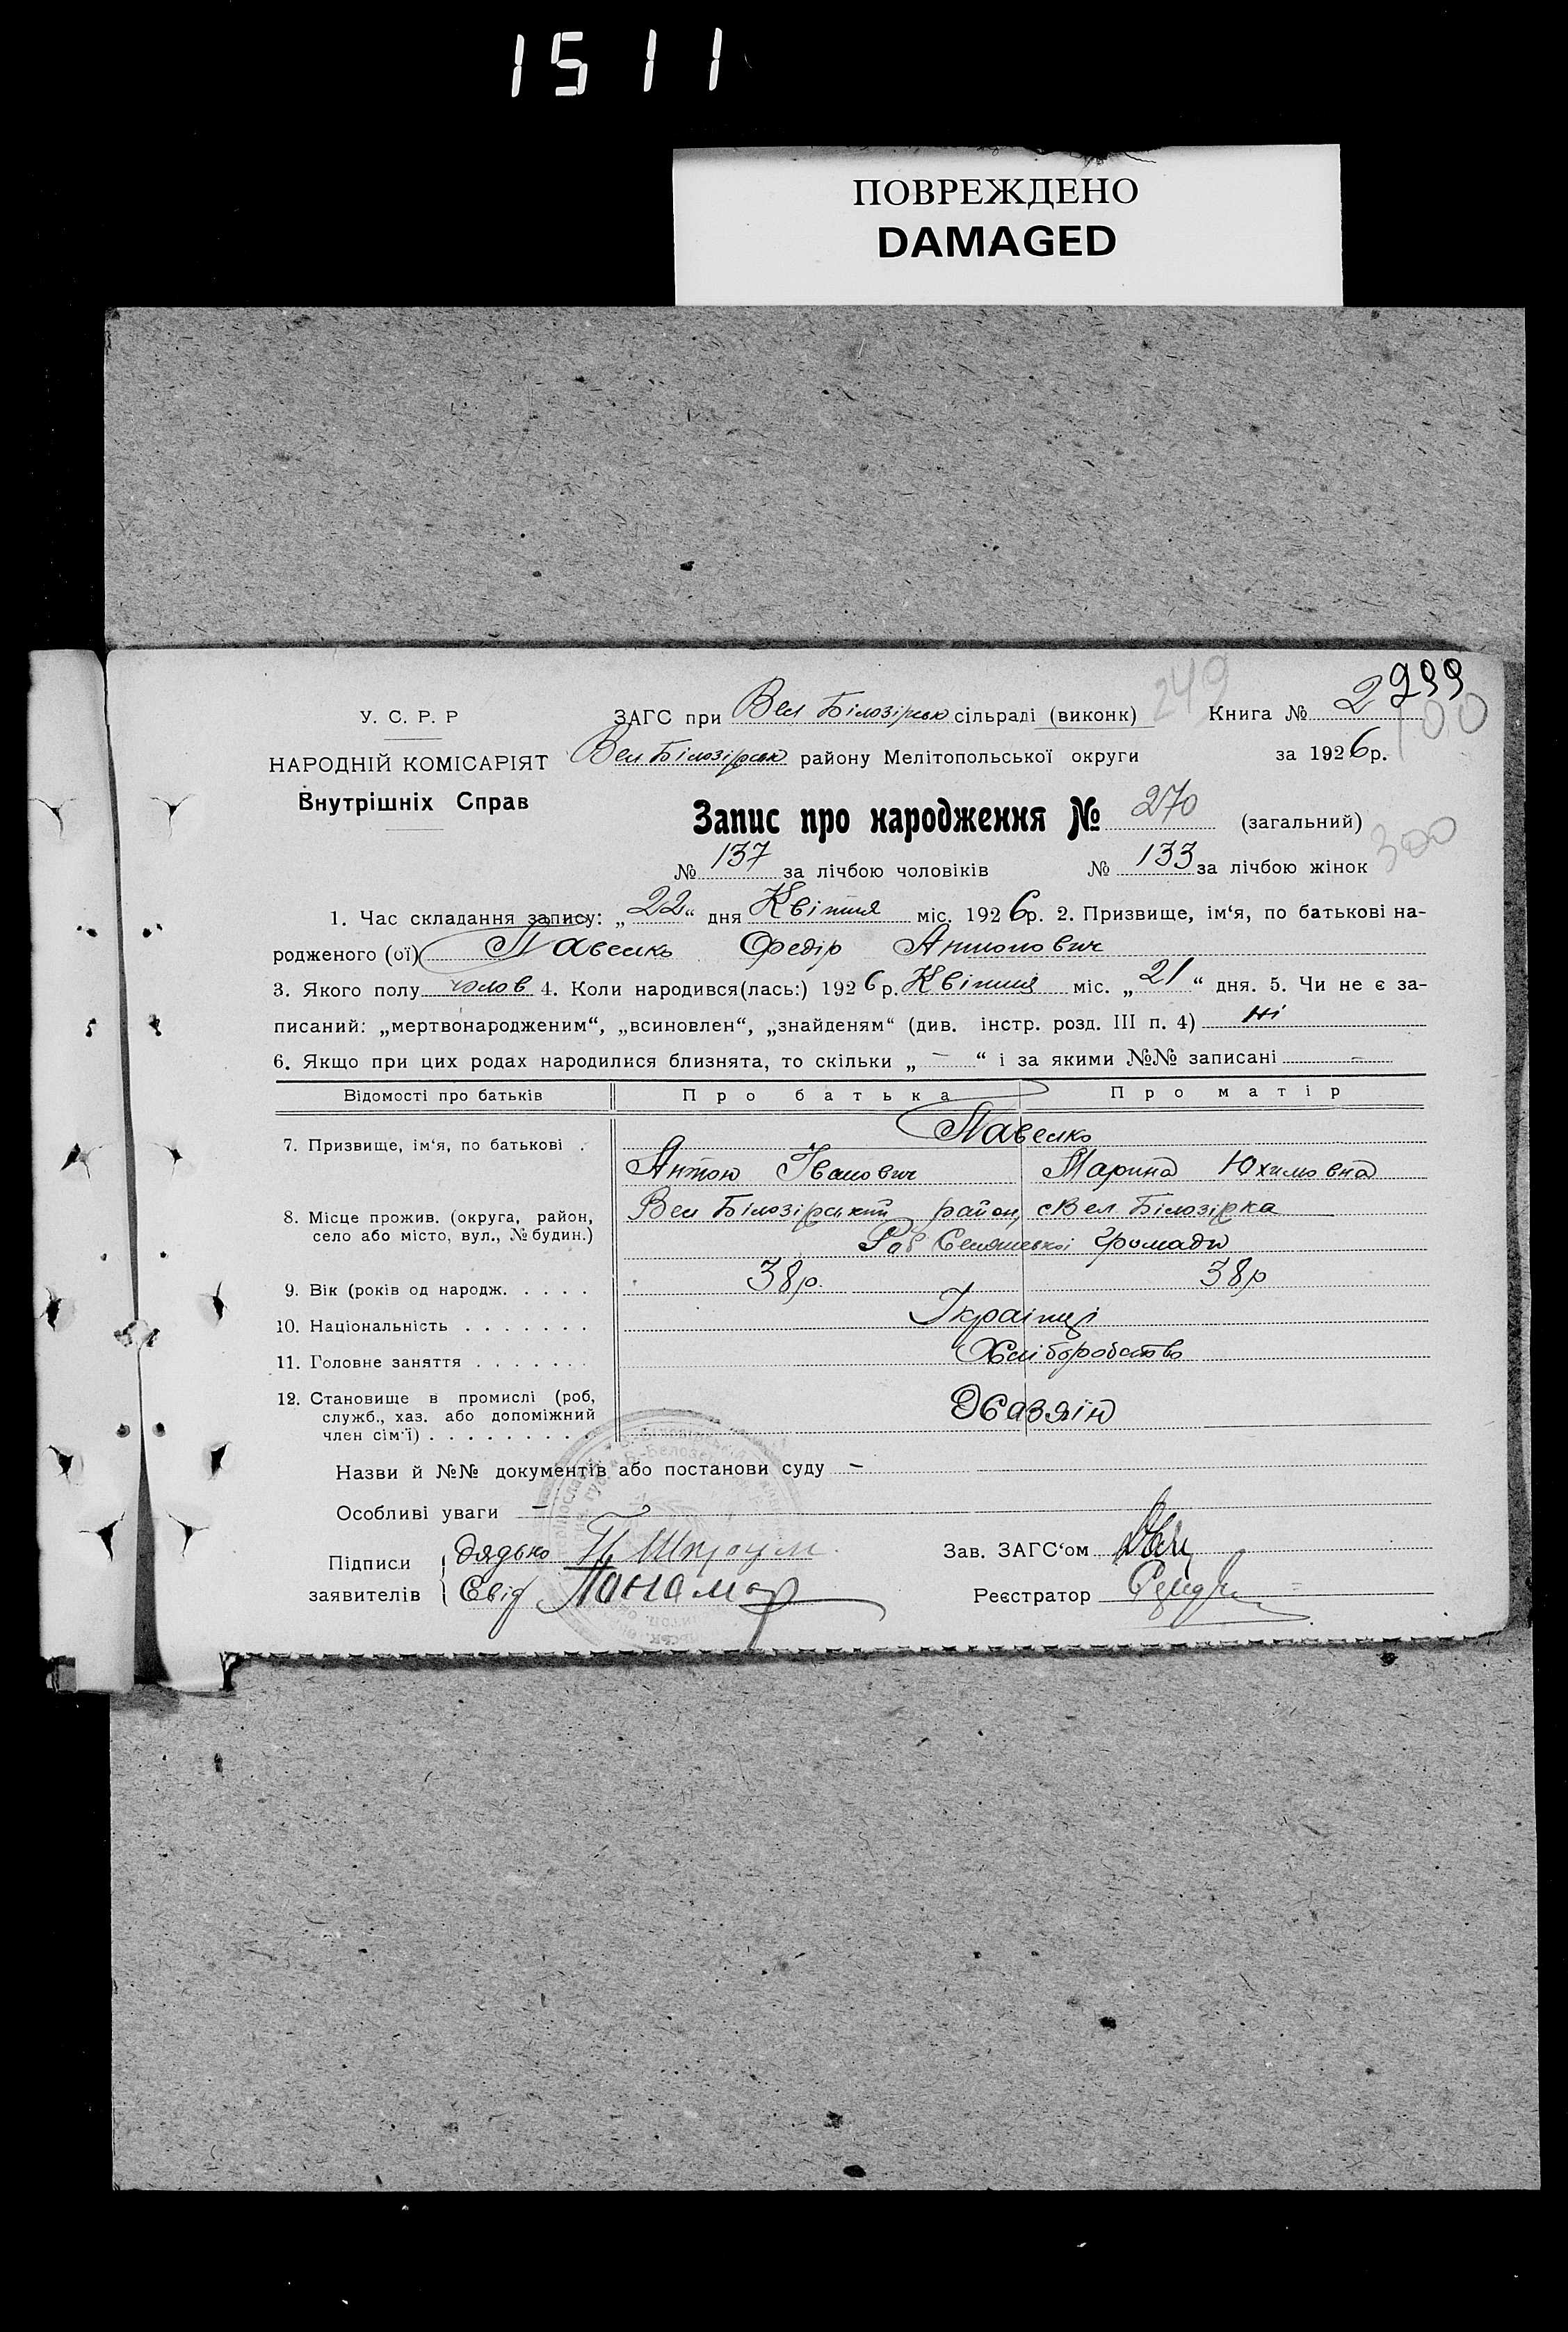 1511
ПОВРЕЖДЕНО
DAMAGED
249
299
У. С. Р. Р
ЗАГС при Вел Білозірськ сільраді (виконк)
Книга № 2
100
НАРОДНІЙ КОМІСАРІЯТ
Вел Білозірськ району Мелітопольської округи
за 1926р.
Внутрішніх Справ
Запис про народження № 270 (загальний)
300
№ 137 за лічбою чоловіків № 133 за лічбою жінок
1. Час складання запису: „22“ дня Квітня міс. 1926р. 2. Призвище, ім‘я, по батькові на-
родженого (ої) Павелко Федір Антонович
3. Якого полу чолов 4. Коли народився(лась:) 1926р. Квітня міс. „21“ дня. 5. Чи не є за-
писаний: „мертвонародженим“, „всиновлен“, „знайденям“ (див. інстр. розд. III п. 4) Ні
6. Якщо при цих родах народилися близнята, то скільки „ — “ і за якими №№ записані —
Відомості про батьків Про батька Про матір
7. Призвище, ім‘я, по батькові . Павелко
Антон Іванович Марина Юхимовна
8. Місце прожив. (округа, район, Вел Білозірський район, с Вел Білозірка
село або місто, вул., № будин.) Селянської громади
9. Вік (років од народж. . . . . 38р. 38р
10. Національність . . . . . . . Українці
11. Головне заняття . . . . . . . Хліборобство
12. Становище в промислі (роб,
служб., хаз. або допоміжний Хазяін
член сім‘ї) . . . . . . . . .
Назви й №№ документів або постанови суду —
Особливі уваги —
Підписи дядько
заявителів Свід Панамар
Зав. ЗАГС‘ом
Реєстратор